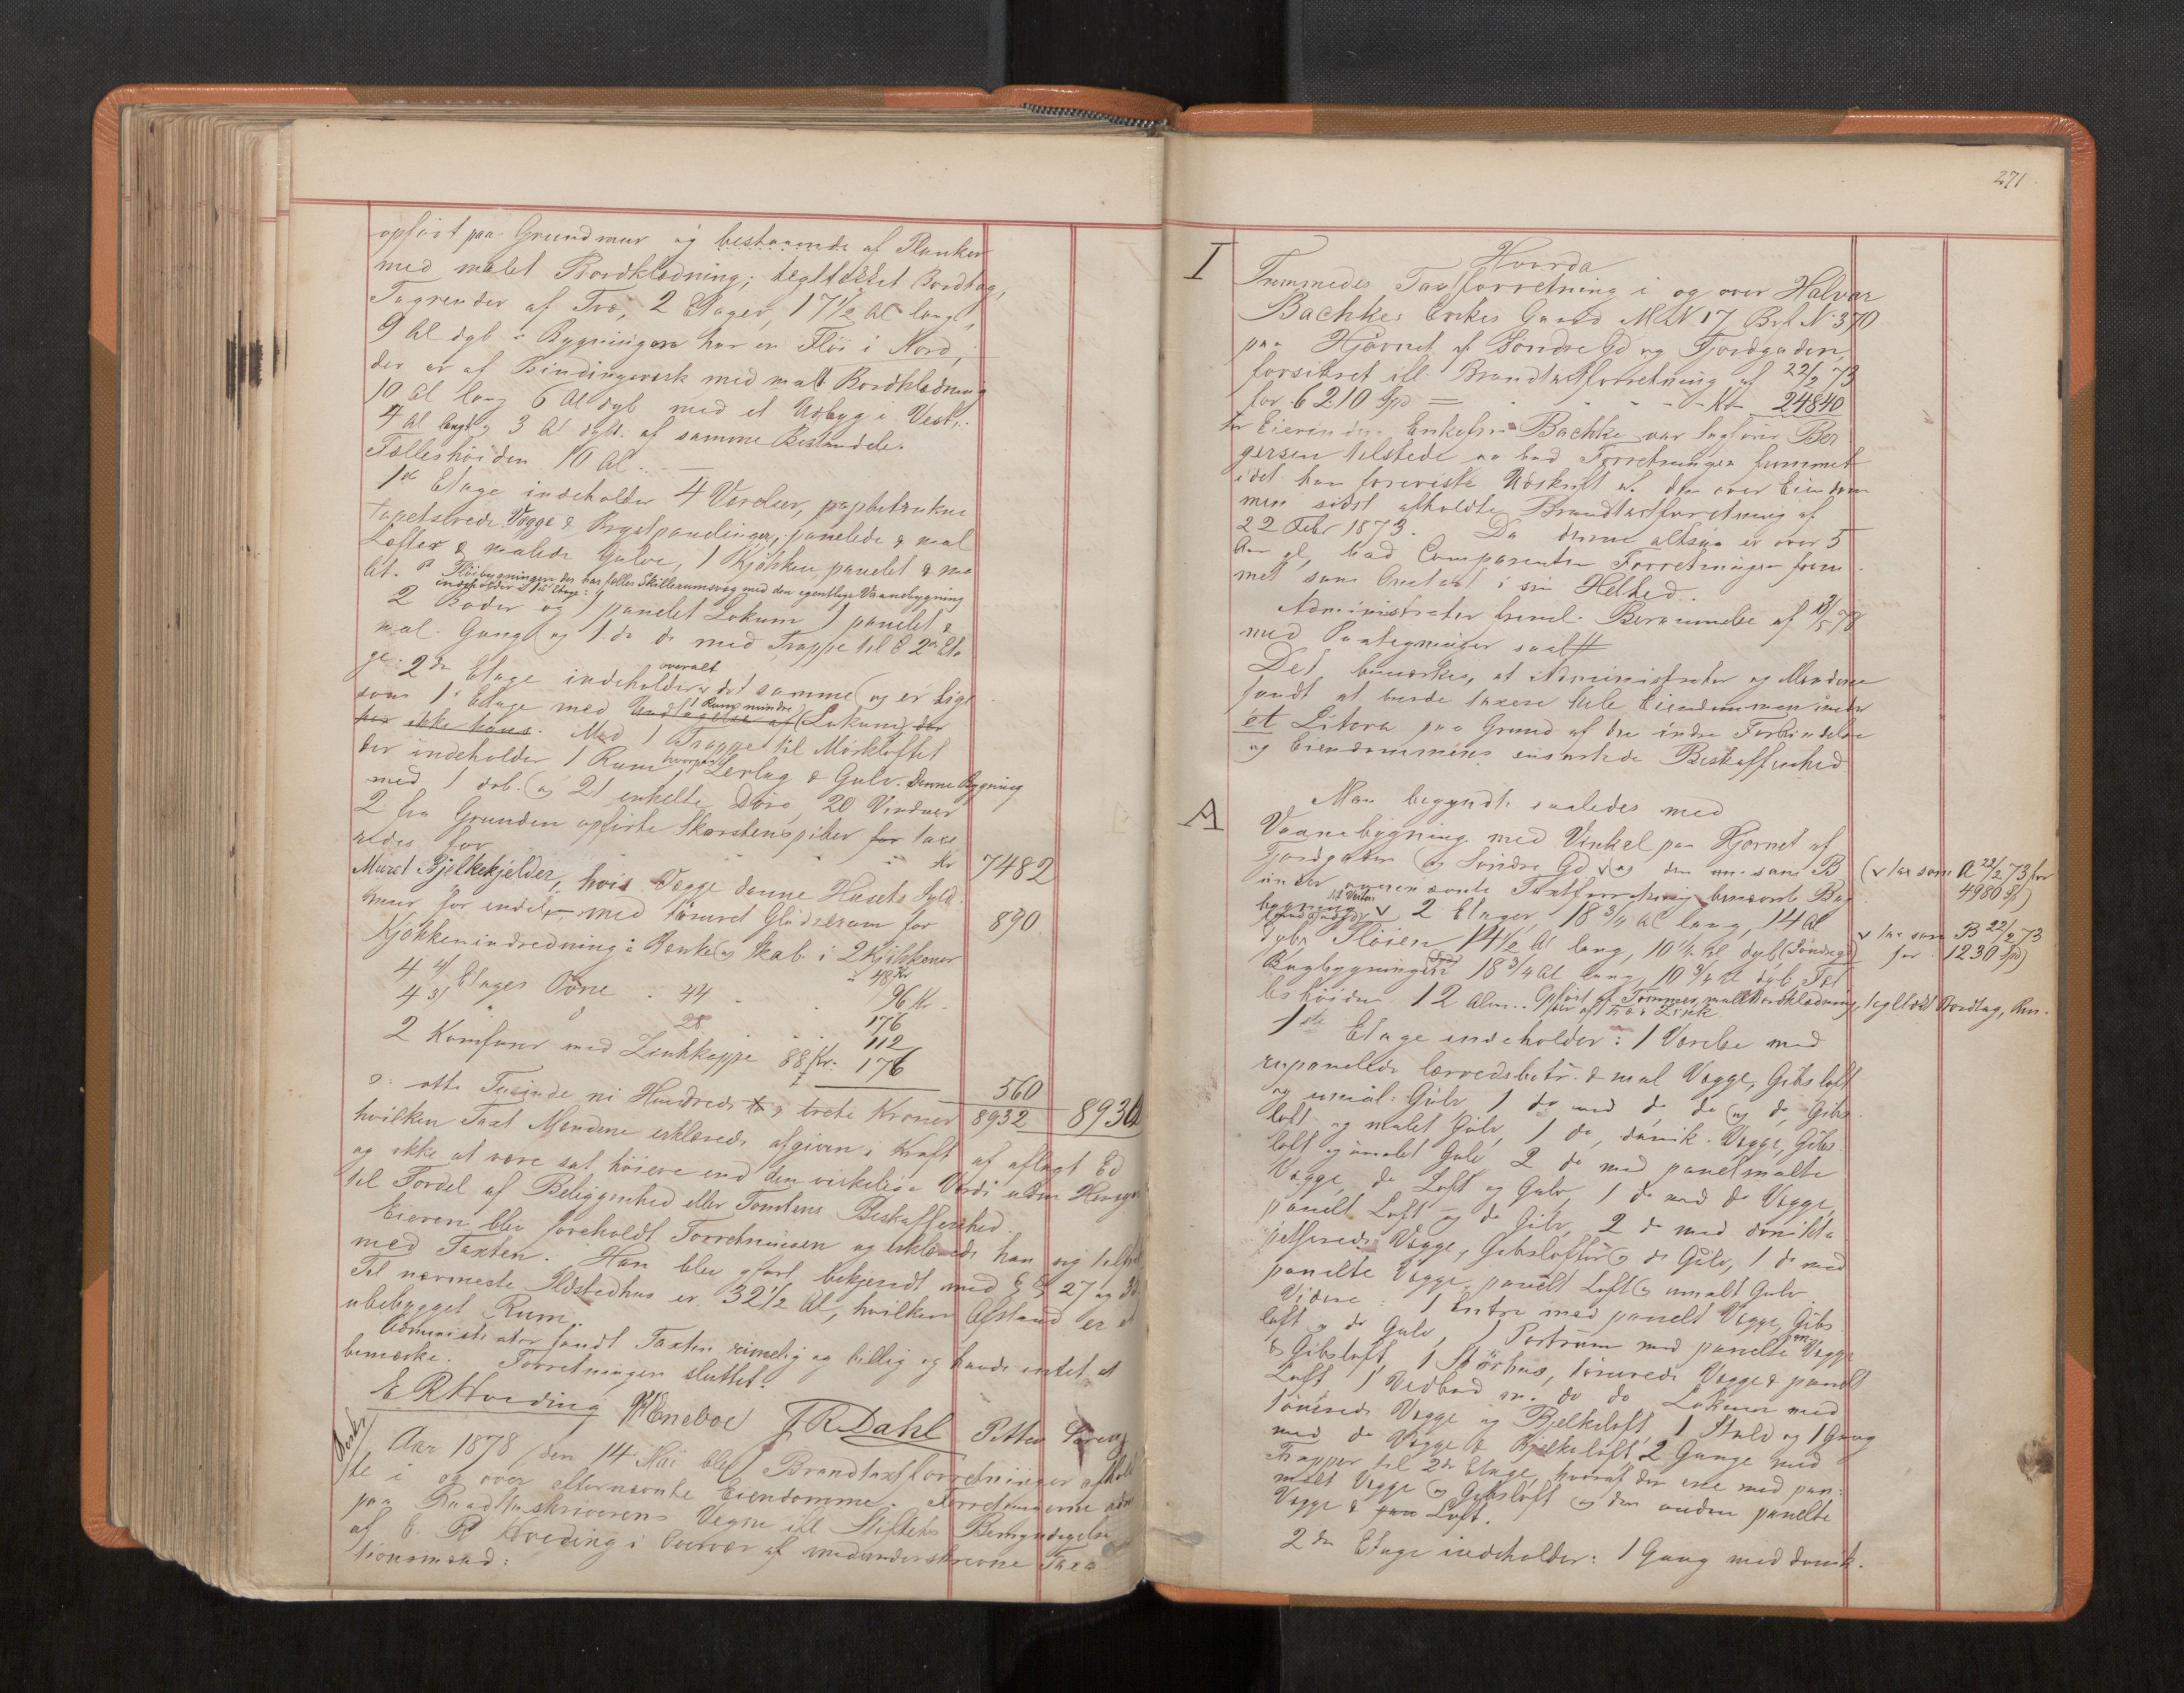 opført paa Grundmur og bestaaende af Planker
med malet Bordklædning; tegltækket Bordtag,
Tagrender af Træ, 2 Etager, 17 1/2 Al lang,
9 Al dyb. Bygningen har en Fløi i Nord,
der er af Bindingsværk med malt Bordklædning
10 Al lang 6 Al dyb med et Udbyg i Vest,
4 Al langt og 3 Al dybt af samme Bestanddele.
Fælleshøiden 10 Al.
1ste Etage indeholder 4 Værelser, papbetrukne
tapetserede Vægge & Brystpanelinger, panelede & mal
Lofter & malede Gulve, 1 Kjøkken panelet & ma
let.
Fløibygningen der har fælles Skillerumsvæg med den egentlige Vaanebygning
indeholder i 1ste Etage:
2 Boder og 1 panelet Lokum 1 panelet &
mal. Gang og 1 do do med Trappe til 2den Eta
ge: 2den Etage indeholder overalt det samme og er lige
som 1ste Etage med Undtagelse af 1 Rum mindre (Lokum) der
her ikke haves. Med 1 Trappe til Mørkloftet
der indeholder 1 Rum hvorpaa Lerlag & Gulv. Denne Bygning
med 1 dob. og 21 enkelte Døre, 20 Vinduer
2 fra Grunden opførte Skorstenspiber for taxe
redes for Kr 7482
Muret Bjelkekjelder, hvis Vægge danne Husets Syld
mur for endel med muret Gulv for 890
Kjøkkenindredning: Bænke og Skab i 2 Kjøkkener
á 48 Kr 96 Kr
4 4/ Etages Ovne 44 176
4 3/ " " 28 112
2 Komfurer med Zinkkappe 88 Kr: 176
560
o: otte Tusinde ni Hundrede to og trete Kroner 8932 8932
hvilken Taxt Mændene erklærede afgiven i Kraft af aflagt Ed
og ikke at være sat høiere end den virkelige Værdi uden Hensyn
til Fordel af Beliggenhed eller Tomtens Beskaffenhed.
Eieren blev foreholdt Forretningen og erklærede han sig tilfreds
med Taxten. Han blev gjort bekjendt med §§ 27 og 30
Til nærmeste Ildstedhus er 32 1/2 Al, hvilken Afstand er et
ubebygget Rum.
Administrator fandt Taxten rimelig og billig og havde intet at
bemærke. Forretningen sluttet.
E R Hveding Eneboe J R Dahl Petter
Aar 1878 den 14 Mai blev Brandtaxtforretninger afhold
te i og over efternævnte Eiendomme. Forretningerne adm
paa Raadstuskriverens Vegne ifl Stiftets Bemyndigelse
af E. R Hveding i Overvær af medunderskrevne Taxa
tionsmænd:
271
I
Hvorda
Fremmedes Taxtforretning i og over Halvar
Bachkes Enkes Gaard M N 17 Brf N 370
paa Hjørnet af Søndre Gd og Fjordgaden,
forsikret ifl Brandtaxtforretning af 22/2 73
for 6210 Spd = Kr 24840
For Eierinden Enkefru Bachke var Sagfører Ber
gersen tilstede og bad Forretningen fremmet
idet han foreviste Udskrift af den over Eiendom
men sidst afholdte Brandtaxtforretning af
22 Febr 1873. Da denne altsaa er over 5
Aar gl, bad Comparenten Forretningen frem
met som Omtaxt i sin Helhed.
Administrator freml. Berammelse af 13/5 78
med Paategninger saal#
Det bemærkes, at Administrator og Mændene
fandt at burde taxere hele Eiendommen under
ét Litera paa Grund af den indre Forbindelse
og Eiendommens ensartede Beskaffenhed.
Man begyndte saaledes med
A
Vaanebygning med Vinkel paa Hjørnet af
Fjordgaden og Søndre Gd v og den som B (v tax som A 22/2 73 for
4980 Sp)
under ovennævnte Taxtforretning benævnte Bag
bygning v 2 Etager, 18 3/4 Al lang, 14 Al v tax som B 22/2 73
for 1230 Spd)
dyb, Fløien 14 1/2 Al lang, 10 1/2 Al dyb (Søndregd)
Bagbygningen 18 3/4 Al lang, 10 3/4 Al dyb. Fæl
leshøiden 12 Alen. Opført af Tømmer, malt Bordklædning, tegltækt Bordtag, Ren-
der af Træ & Zink
1ste Etage indeholder: 1 Værelse med
rupanelede lærredsbetr. & mal Vægge, Gibsloft
og umal: Gulv 1 do med do do og do, Gibs
loft og malet Gulv, 1 do, do Vægge, Gibs
loft og umalet Gulv 2 do med panel malte
Vægge, do Loft og Gulv, 1 do med do Vægge,
panelt Loft og do Gulv, 2 do med do ta
petserede Vægge, Gibslofter og do Gulv, 1 do med
panelte Vægge, panelt Loft og umalt Gulv
Videre: 1 Entre med panelt Vægge, Gibs
loft og do Gulv, 1 Portrum med panelte Vægge
& Gibsloft, 1 Størhus, Vægge & panelt
Loft 1 Vedbod m. do do Lokum med
Vægge og Bjelkeloft, 1 Stald og 1 Gang
med do Vægge & Bjelkeloft, 2 Gange med
Trapper til 2den Etage, hvoraf den ene med pan:
malt Vægge og Gibsloft og den anden panelte
Vægge & Loft.
2den Etage indeholder: 1 Gang med